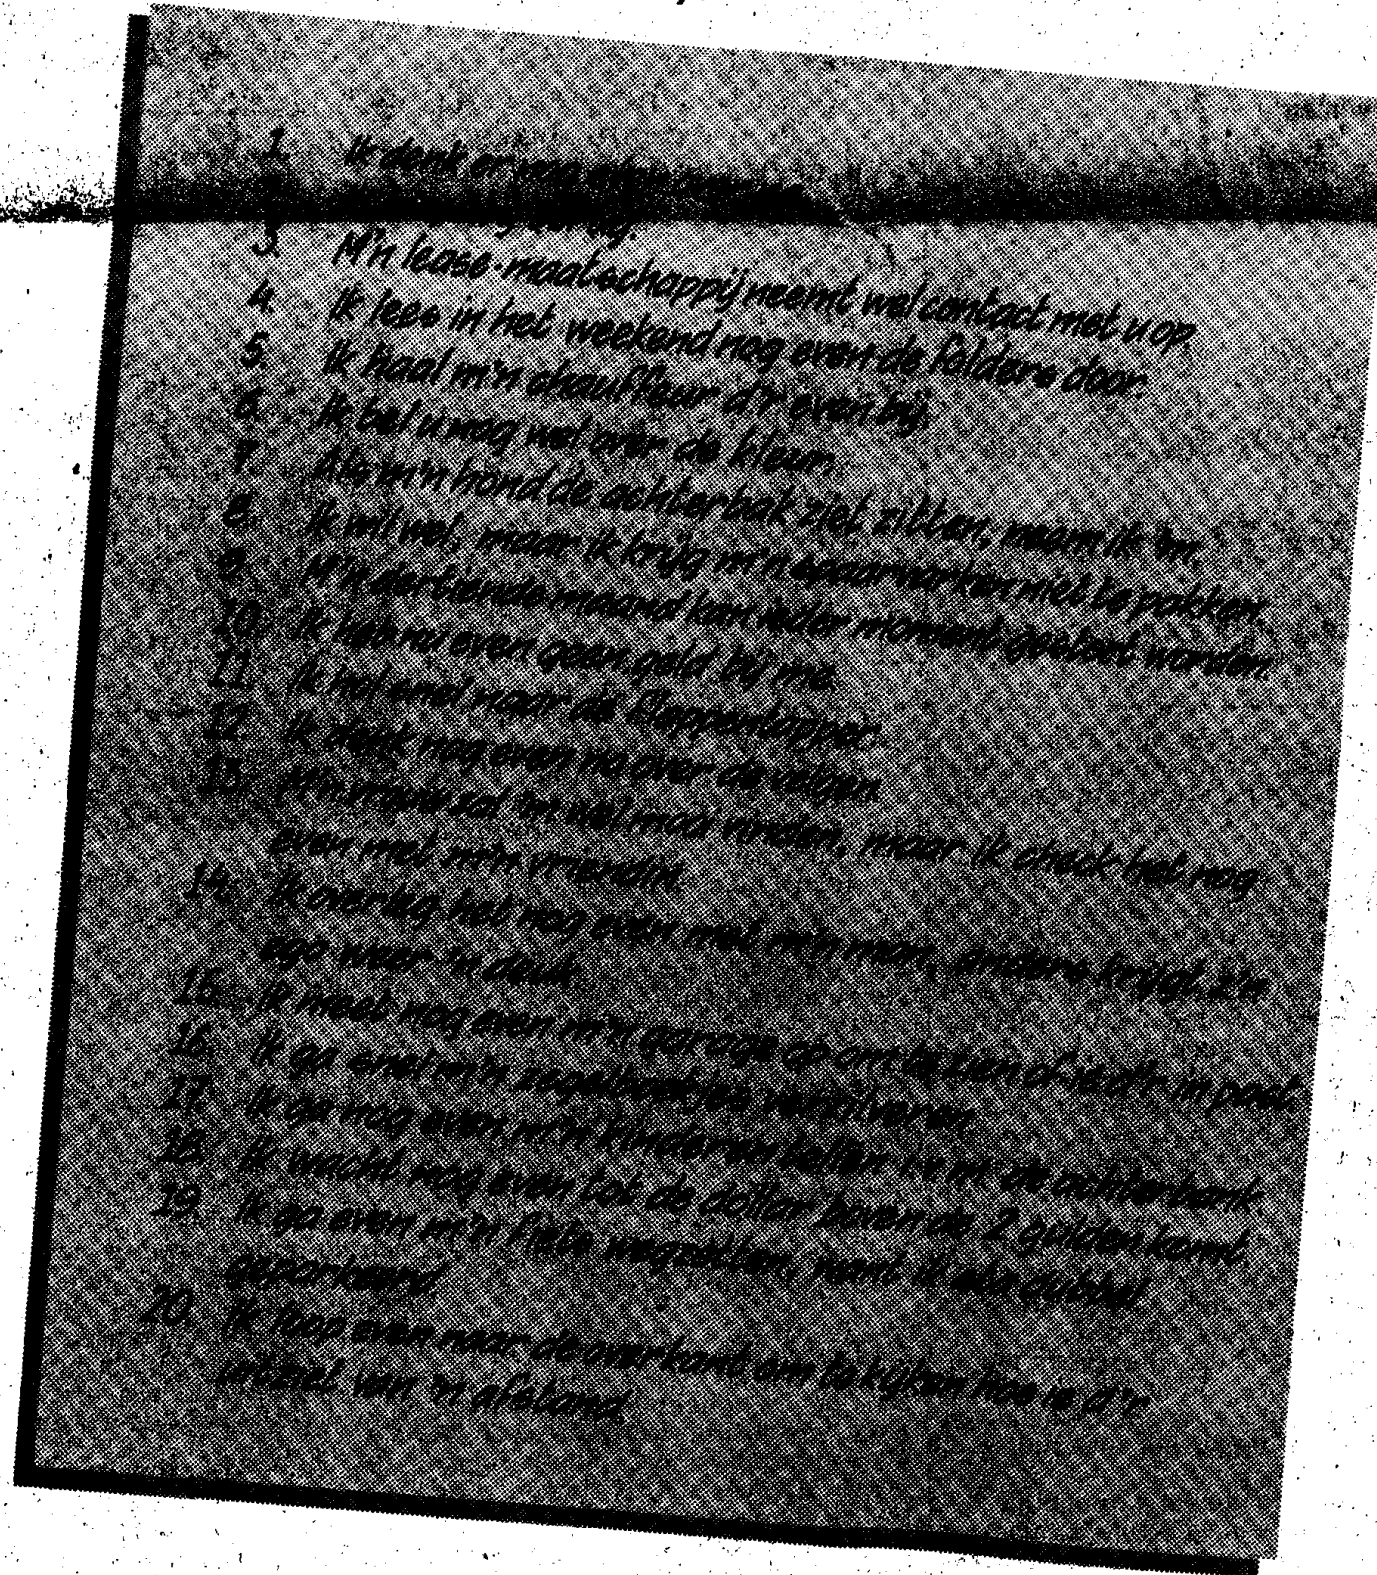 1. Ik denk er nog even over na.
3. M'n lease-maatschappij neemt wel contact met u op.
4. Ik lees in het weekend nog even de folders door.
5. Ik haal m'n chauffeur d'r even bij.
6. Ik bel u nog wel over de kleur.
7. Als m'n hond de achterbak ziet zitten, neem ik 'm.
8. Ik wil wel, maar ik krijg m'n spaarvarken niet te pakken.
9. M'n dertiende maand kan ieder moment gestort worden.
10. Ik heb nu even geen geld bij me.
11. Ik hol snel naar de flappentapper.
12. Ik denk nog even na over de velgen.
13. M'n vrouw zal 'm wel mooi vinden, maar ik check het nog
even met m'n vriendin.
14. Ik overleg het nog even met m'n man, anders krijgt z'n
ego weer 'n deuk.
15. Ik meet nog even m'n garage op om te zien of ie d'r in past.
16. Ik ga snel m'n zegelboekjes verzilveren.
17. Ik ga nog even m'n kinderen bellen i.v.m. de achterbank.
18. Ik wacht nog even tot de dollar boven de 2 gulden komt.
19. Ik ga even m'n fiets wegzetten, want ik sta dubbel
geparkeerd.
20. Ik loop even naar de overkant om te kijken hoe ie d'r
uitziet van 'n afstand.